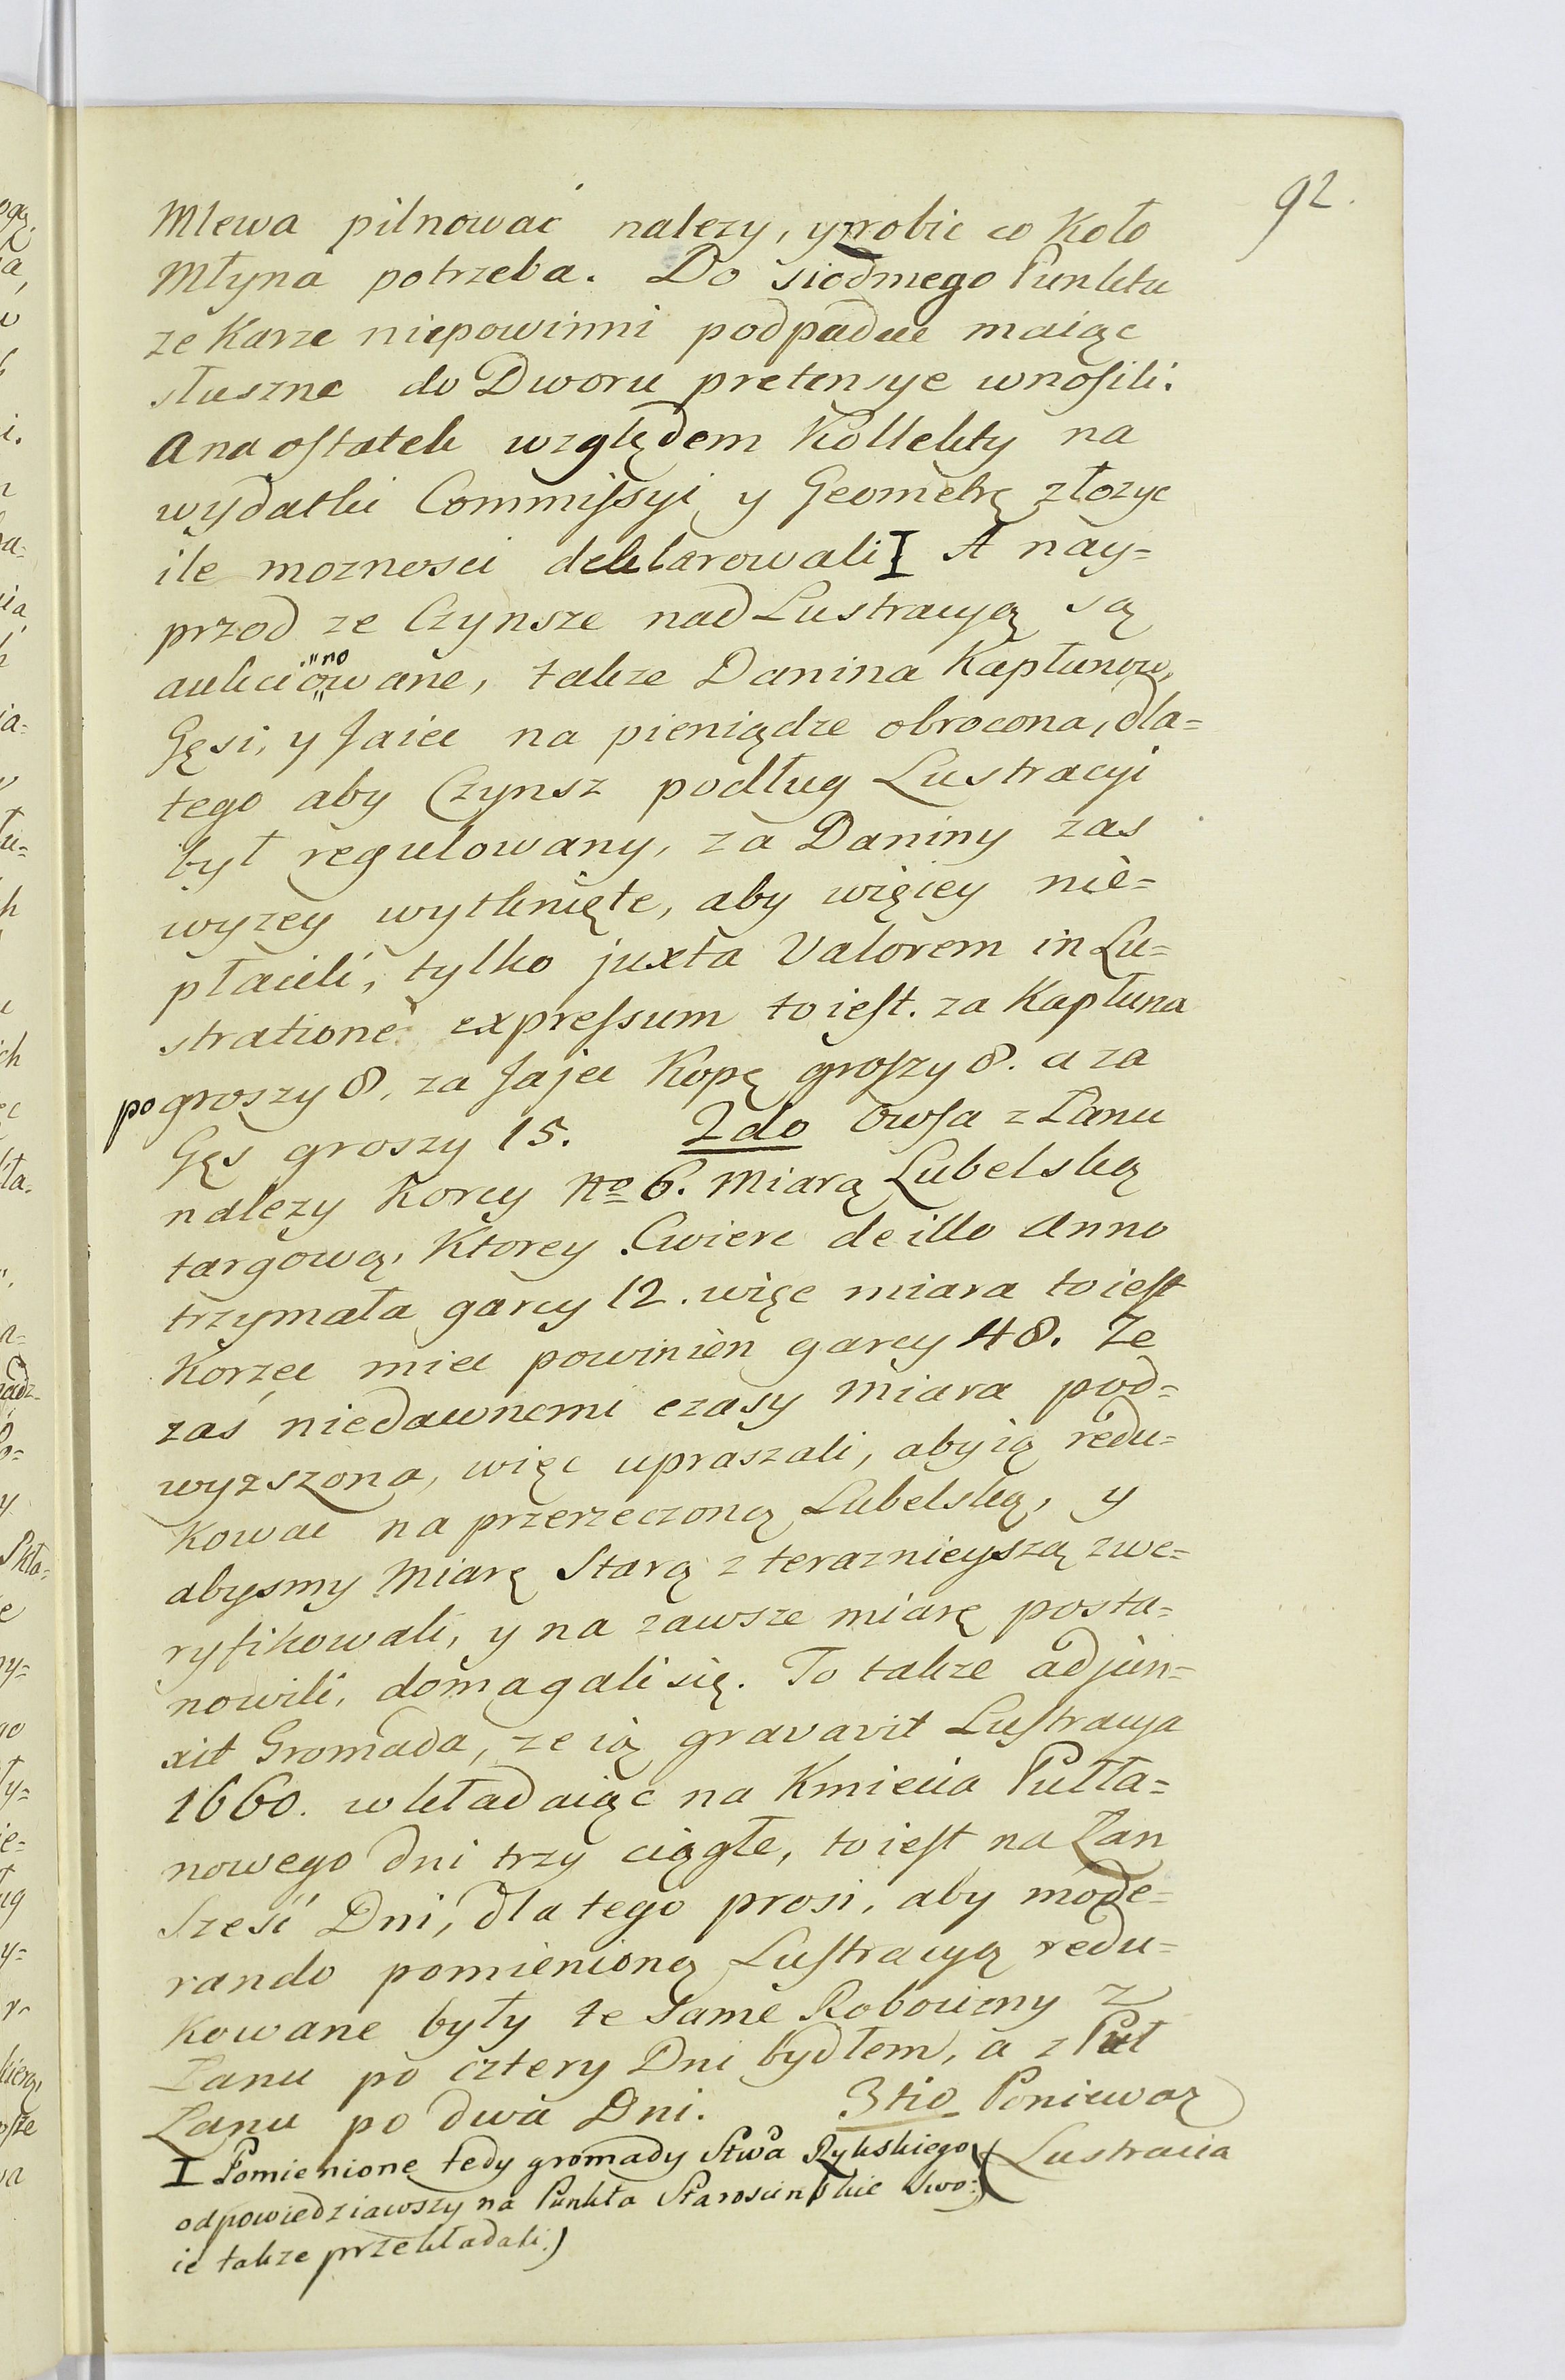 92.
Mlewa pilnować nalezy, y robic co Koło
Młyna potrzeba. Do siodmego Punktu
ze Karze niepowinni podpadac maiąc
słuszne do Dworu pretensye wnosili.
A na ostatek względem Kollekty na
wydatki Commissyi y Geometrę złozyc
ile moznosci deklarowali I A nay=
przod ze Czynsze nad Lustracyą są
aukcionowane, takze Danina Kapłunow,
Gęsi, y Jaiec na pieniądze obrocona, dla=
tego aby Czynsz podług Lustracyi
był regulowany, za Daniny zas
wyzey wytknięte, aby więcey nie=
płacili, tylko juxta Valorem in Lu=
stratione expressum to iest. za Kapłuna
po groszy 8, za Jajec Kopę groszy 8. a za
Gęs groszy 15. 2do Owsa z Łanu
nalezy Korcy No 6. Miarą Lubelską
targową, Ktorey Cwierc de illo Anno
trzymała garcy 12. więc miara to iest
Korzec miec powinien garcy 48. Ze
zaś niedawnemi czasy miara pod=
wyzszona, więc upraszali, aby ią redu=
kowac na przerzeczoną Lubelską, y
abysmy Miarę Starą z teraznieyszą zwe=
ryfikowali, y na zawsze miarę posta=
nowili, domagali się. To takze adjun=
xit Gromada, ze ią gravavit Lustracya
1660. wkładaiąc na Kmiecia Pułła=
nowego dni trzy ciągłe, to iest na Łan
Sześć Dni, dla tego prosi, aby mode=
rando pomienioną Lustracyą redu=
kowane były te same Robocizny z
Łanu po cztery Dni bydłem, a z Puł
Łanu po dwa Dni. 3tio Poniewaz
Lustracia
I Pomienione tedy gromady Stwa Rykskiego
odpowiedziawszy na Punkta Staroscinskie swo:
ie takze przekładali.)